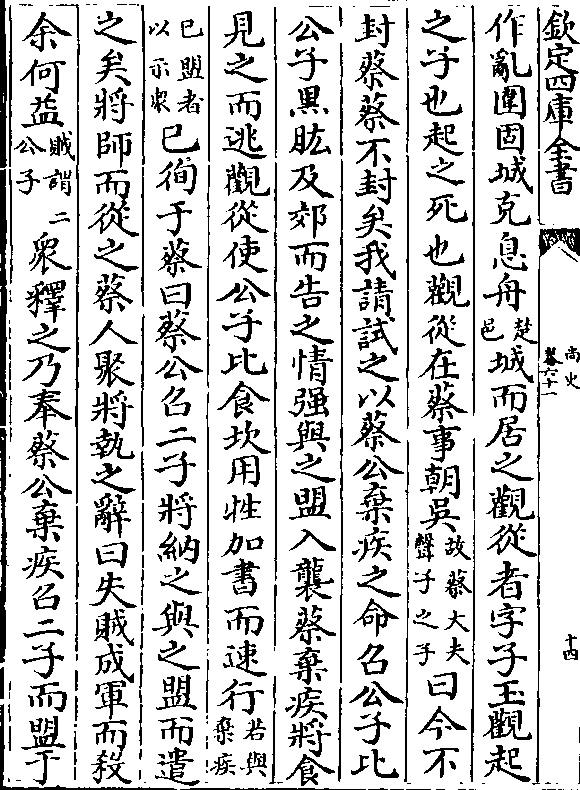 欽定四庫全書
尚史
卷六十一
十四
作亂圍固城克息舟楚邑城而居之觀從者字子玉觀起
之子也起之死也觀從在蔡事朝吳故蔡大夫聲子之子曰今不
封蔡蔡不封矣我請試之以蔡公棄疾之命召公子比
公子黑肱及郊而告之情强與之盟入襲蔡棄疾將食
見之而逃觀從使公子比食坎用牲加書而速行若與棄疾
已盟者以示衆已徇于蔡曰蔡公召二子將納之與之盟而遣
之矣將師而從之蔡人聚將執之辭曰失賊成軍而殺
余何益賊謂二公子衆釋之乃奉蔡公棄疾召二子而盟于